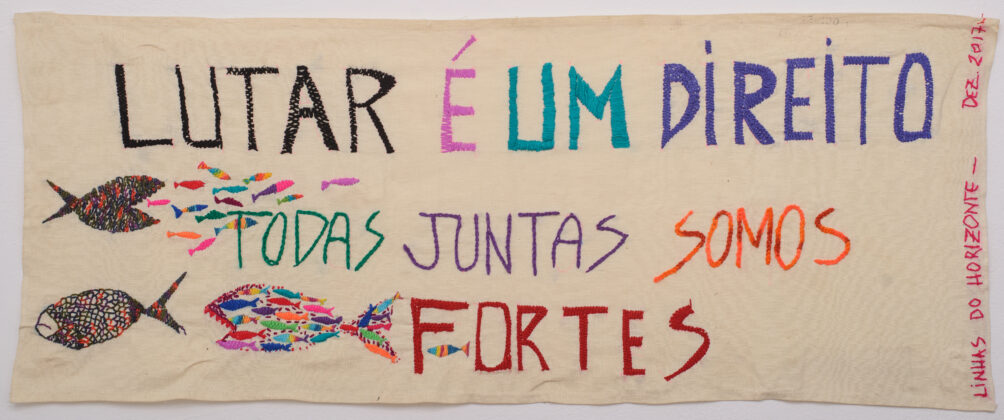 LUTAR É UM DIREITO
TODAS JUNTAS SOMOS
FORTES
LINHAS DO HORIZONTE — DEZ. 2017